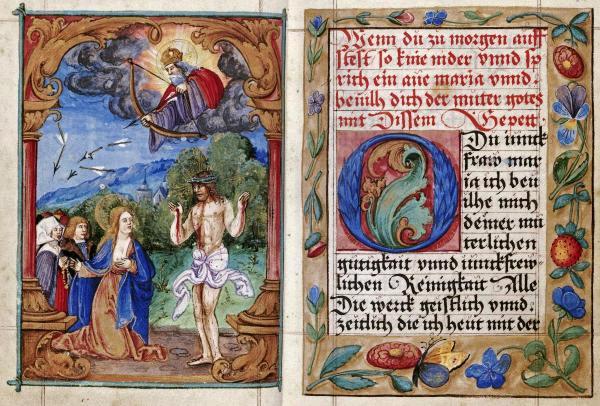 Wenn dū zu morgen auff
stest so knie nider vnnd sp
rich ein aue maria vnnd
beuilh dich der muter gotes
mit Dissem Gepett
O Dū iunck
fraw mar
ia ich beu
ilhe mich
deiner mū
terlichen
gūtigkait vnnd iunckfrew
lichen Reinigkait Alle
Die werck geistlich vnnd
zeitlich die ich heut mit der